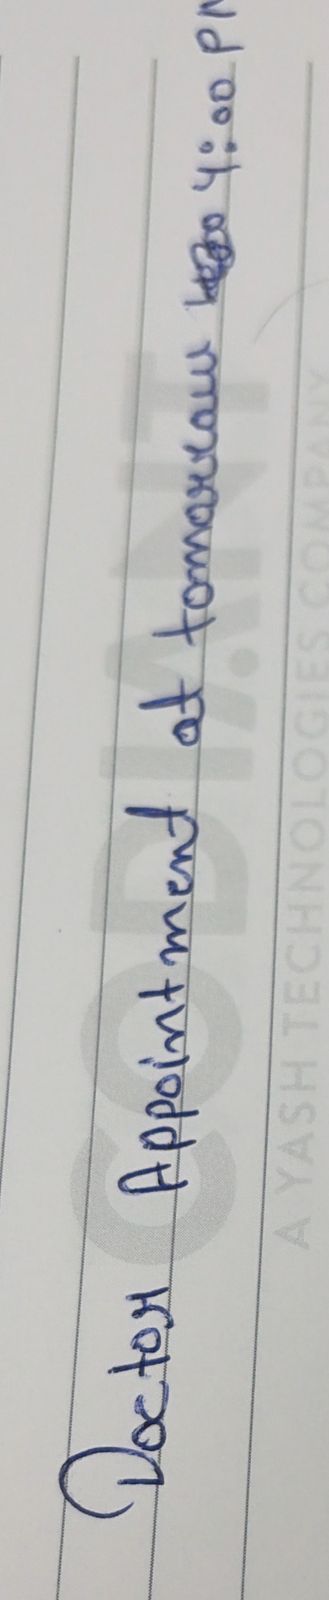 Doctor Appointment at tomorrow 4:00 PM
CODIANT
A YASH TECHNOLOGIES COMPANY